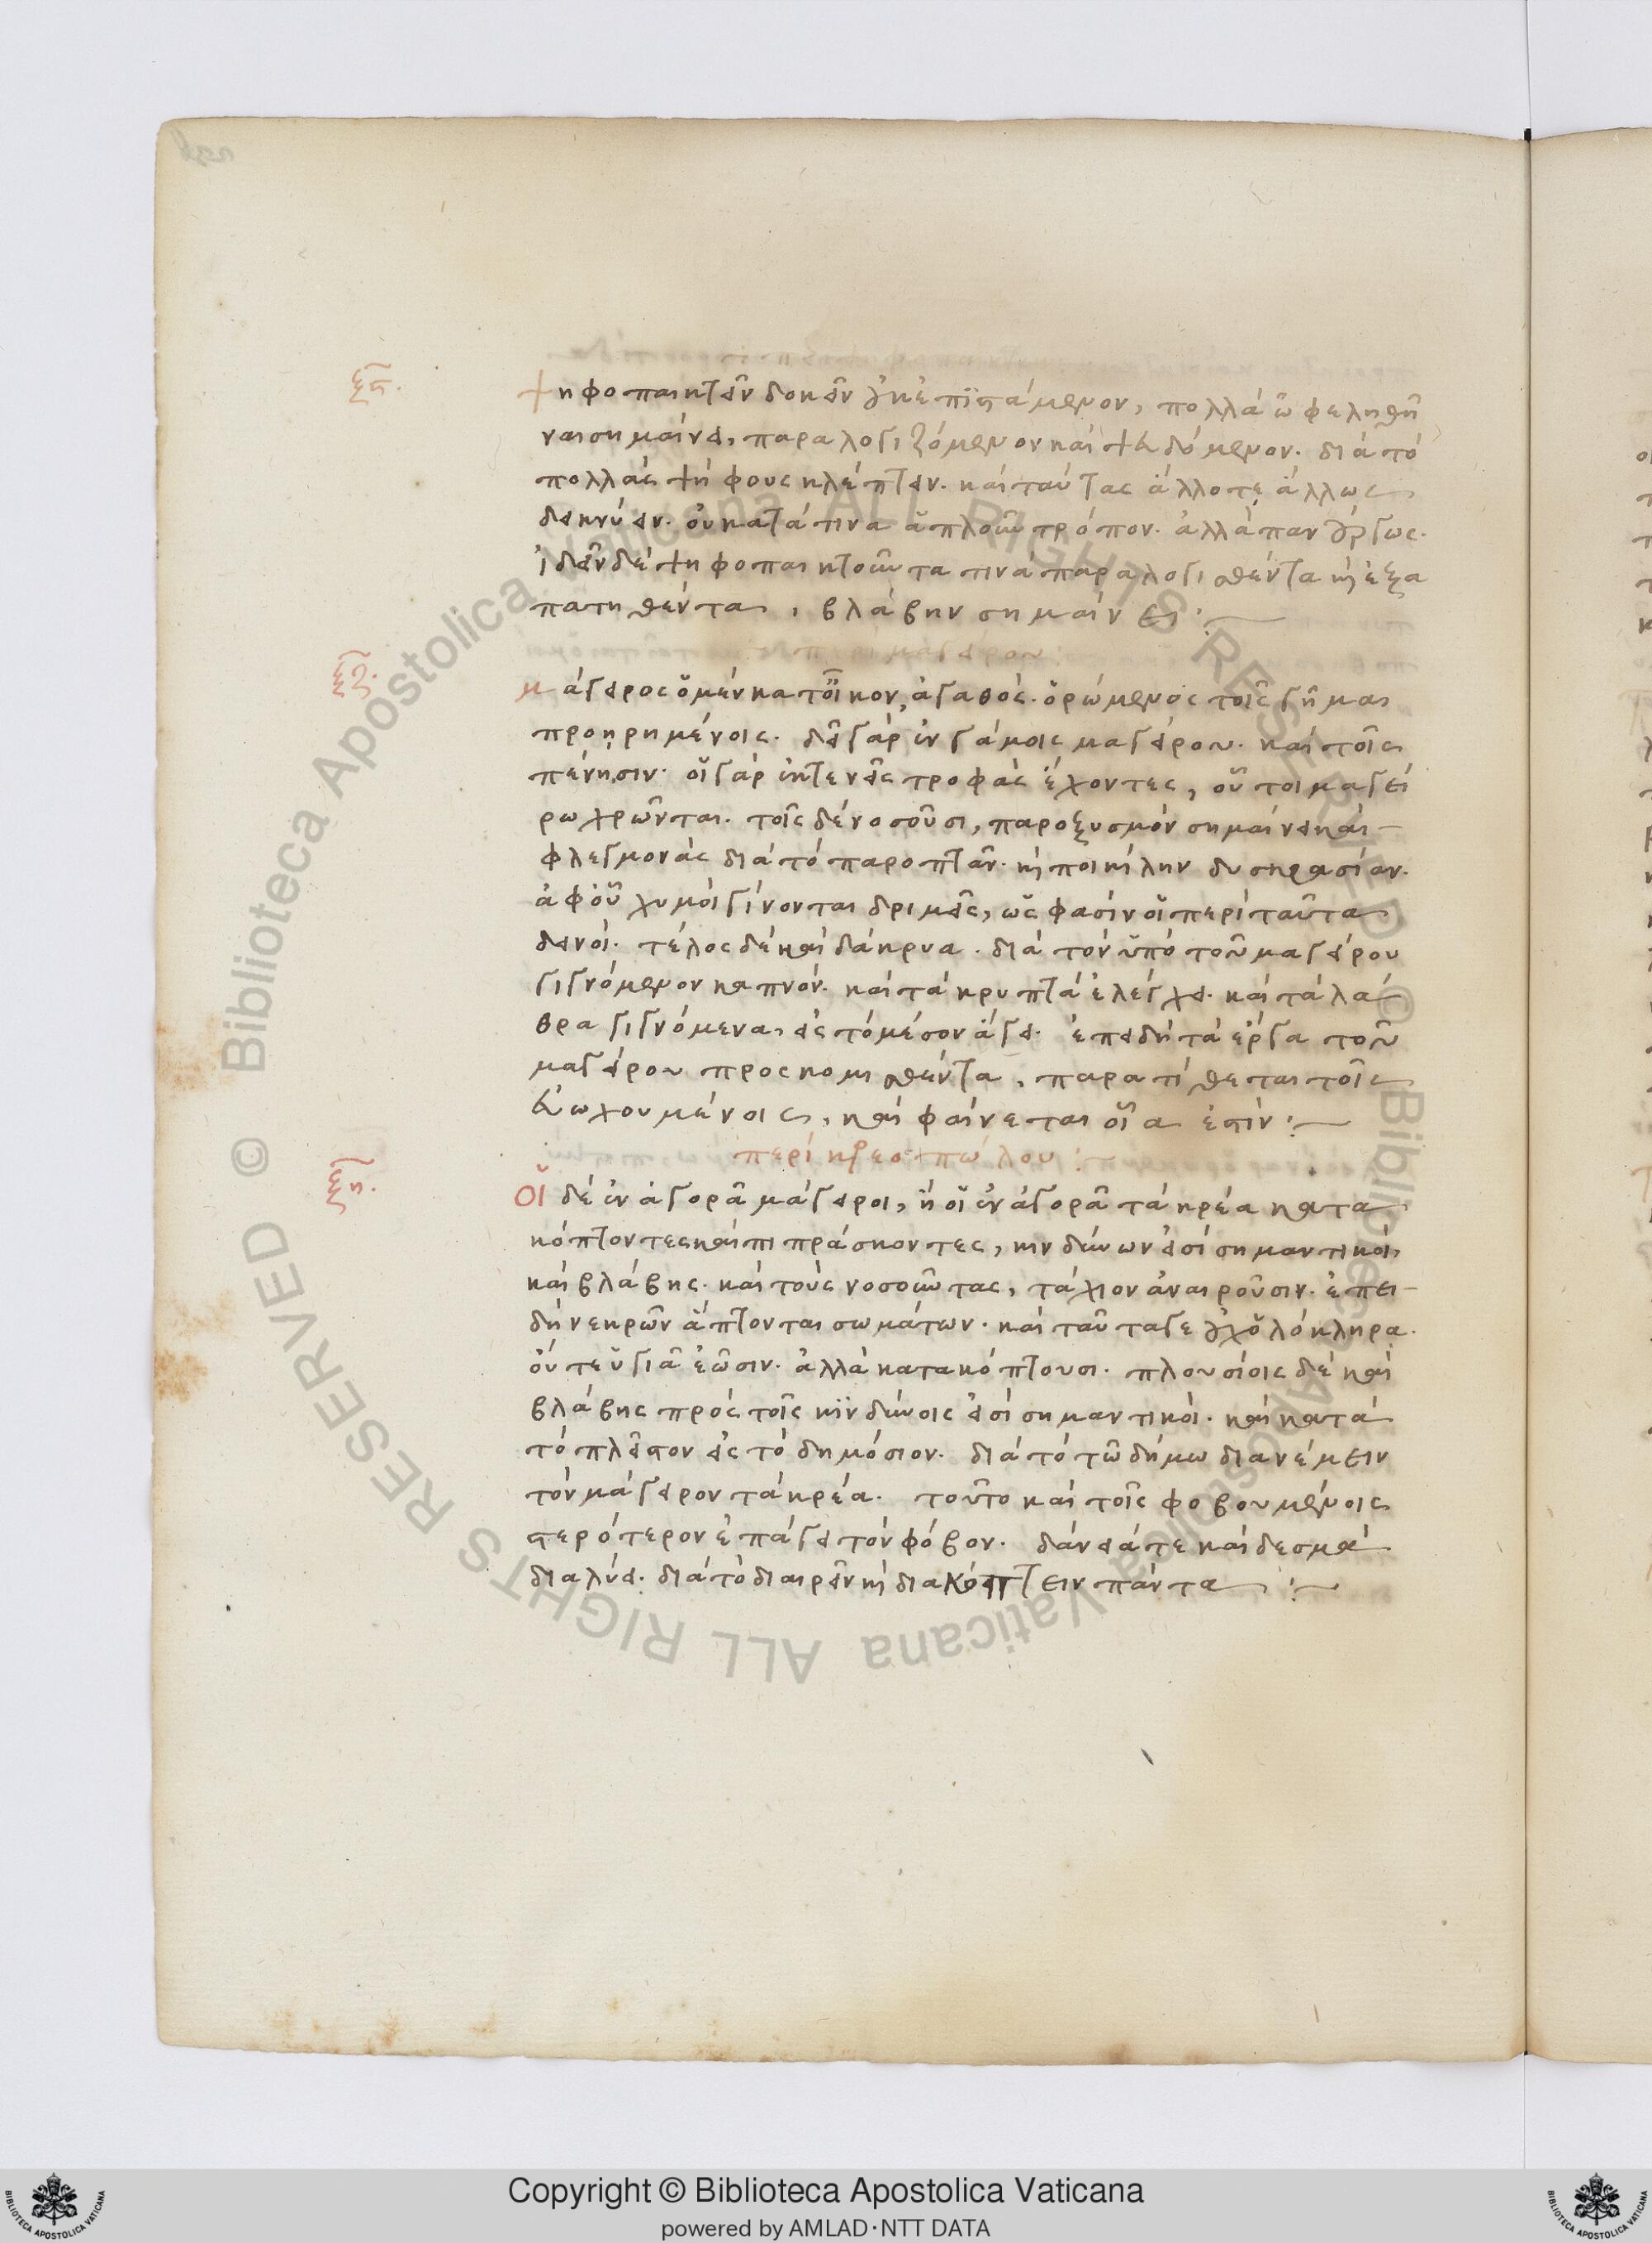 ξϛ.
ψηφοπαικτεῖν δοκεῖν οὐκ ἐπϊστάμενον, πολλὰ ὠφεληθῆ
ναι σημαίνει, παραλογιζόμενον καὶ ψευδόμενον. διὰ τὸ
πολλὰς ψήφους κλέπτειν. καὶ ταύτας ἄλλοτε ἄλλως
δεικνύειν. οὐ κατά τινα ἁπλοῦν τρόπον. ἀλλὰ πανούργως.
ἰδεῖν δὲ ψηφοπαικτοῦντά τινα παραλογισθέντα καὶ ἐξα
πατηθέντα, βλάβην σημαίνει:
περὶ μαγείρου:
ξζ.
μάγειρος ὁ μὲν κατ' οἶκον, ἀγαθὸς. ὁρώμενος τοῖς γῆμαι
προῃρημένοις. δεῖ γὰρ ἐν γάμοις μαγείρου. καὶ τοῖς
πένησιν. οἱ γὰρ ἐκτενεῖς τροφὰς ἔχοντες, οὗτοι μαγεί
ρω χρῶνται. τοῖς δὲ νοσοῦσι, παροξυσμὸν σημαίνει καὶ
φλεγμονὰς διὰ τὸ παροπτᾶν. καὶ ποικίλην δυσκρασίαν.
ἀφ' οὗ χυμοὶ γίνονται δριμεῖς, ὥς φασὶν οἱ περὶ ταῦτα
δεινοί. τέλος δὲ καὶ δάκρυα. διὰ τὸν ὑπὸ τοῦ μαγείρου
γιγνόμενον καπνόν. καὶ τὰ κρυπτὰ ἐλέγχει. καὶ τὰ λά
θρα γιγνόμενα, εἰς τὸ μέσον ἄγει. ἐπειδὴ τὰ ἔργα τοῦ
μαγείρου προσκομισθέντα, παρατίθεται τοῖς
εὐωχουμένοις, καὶ φαίνεται οἷα ἐστίν:
περὶ κρεοπώλου:
ξη.
Οἱ δὲ ἐν ἀγορᾶ μάγειροι, ἢ οἱ ἐν ἀγορᾶ τὰ κρέα κατα
κόπτοντες καὶ πιπράσκοντες, κινδύνων εἰσὶ σημαντικοὶ,
καὶ βλάβης. καὶ τοὺς νοσοῦντας, τάχιον ἀναιροῦσιν. ἐπει
δὴ νεκρῶν ἅπτονται σωμάτων. καὶ ταῦτά γε οὐχ ὁλόκληρα.
οὔτε ὑγιᾶ ἐῶσιν. ἀλλὰ κατακόπτουσι. πλουσίοις δὲ καὶ
βλάβης πρὸς τοῖς κϊνδύνοις εἰσὶ σημαντικοί. καὶ κατὰ
τὸ πλεῖστον εἰς τὸ δημόσιον. διὰ τὸ τῶ δήμω διανέμειν
τὸν μάγειρον τὰ κρέα. τοῦτο καὶ τοῖς φοβουμένοις
στερότερον ἐπάγει τὸν φόβον. δάνειά τε καὶ δεσμὰ
διαλύει. διὰ τὸ διαιρεῖν καὶ διακόπτειν πάντα: